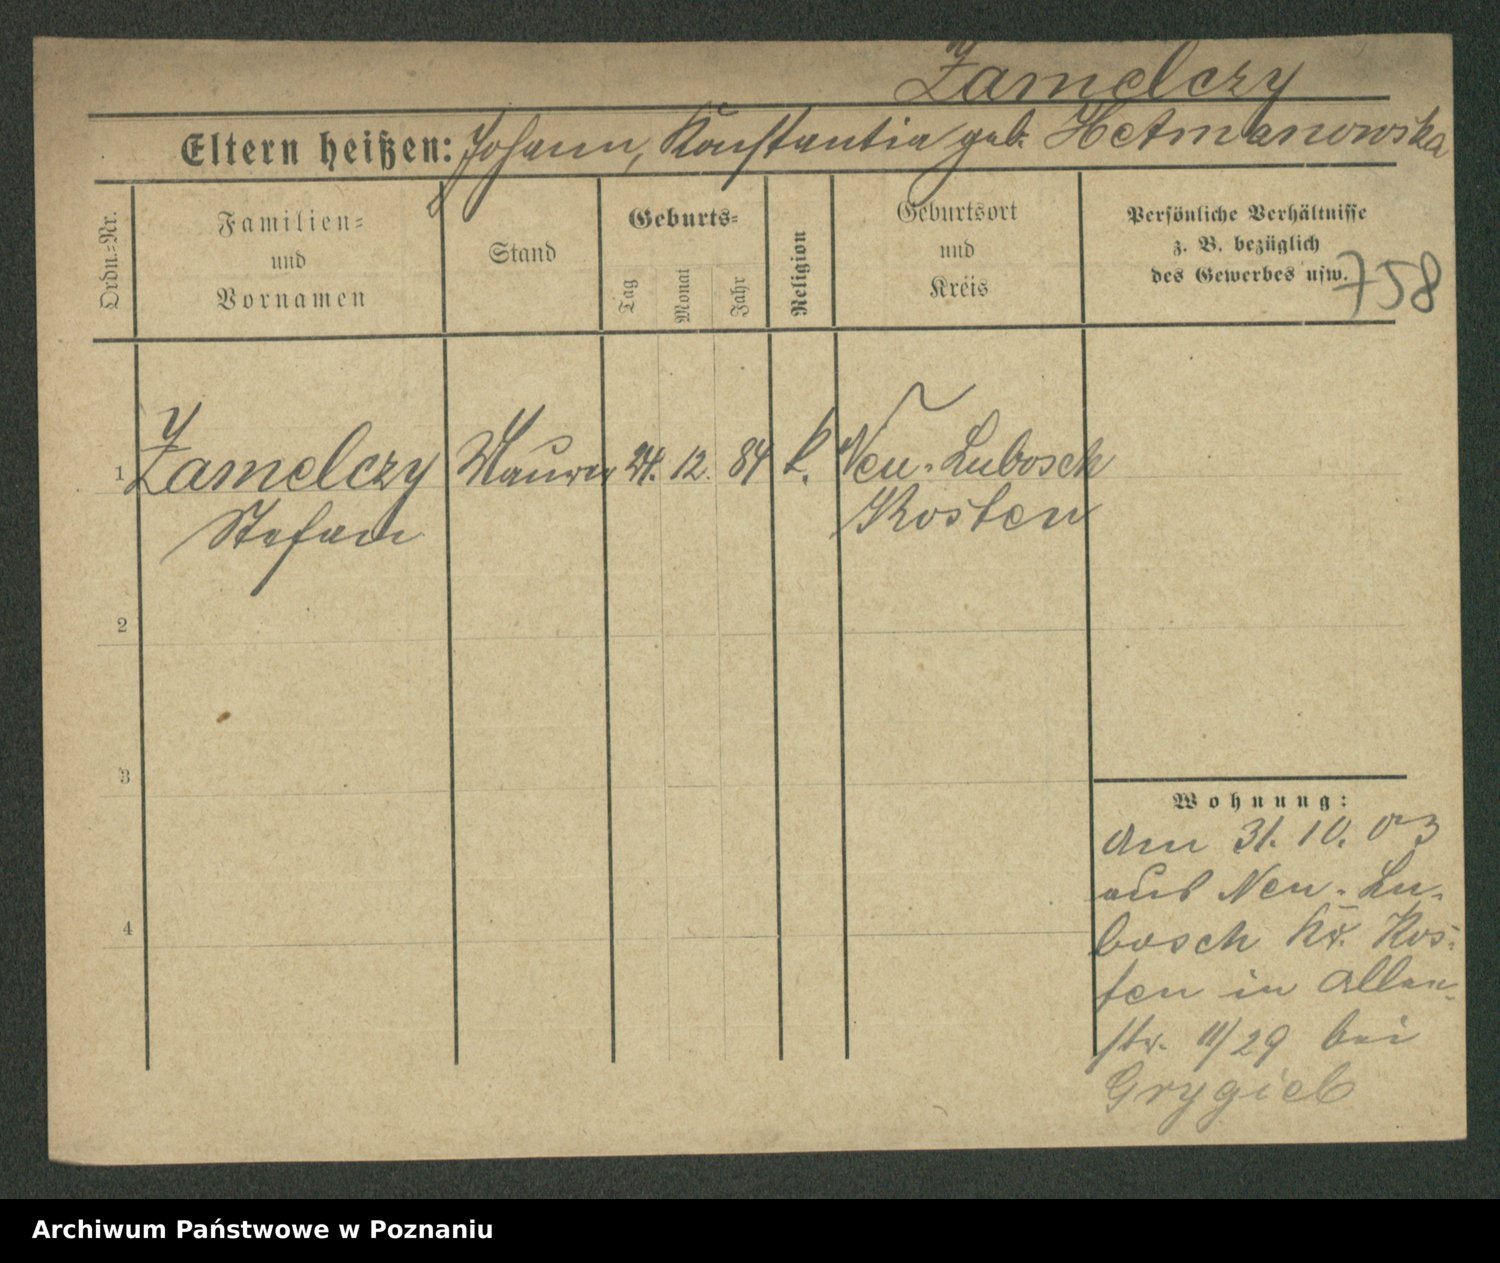 Zamelczy
Eltern heißen: Johann, Konstantia geb. Hetmanowska
Ordn.-Nr.
Familien-
und
Vornamen
Stand
Geburts-
Tag
Monat
Jahr
Religion
Geburtsort
und
Kreis
Persönliche Verhältnisse
z. B. bezüglich
des Gewerbes usw.
758
1 Zamelczy Maurer 24. 12. 84 k. Neu-Lubosch
Stefan Kosten
2
3
4
Wohnung:
am 31. 10. 03
aus Neu-Lu-
bosch Kr. Kos-
ten in Allen-
str. III/29 bei
Grygiel
Archiwum Państwowe w Poznaniu